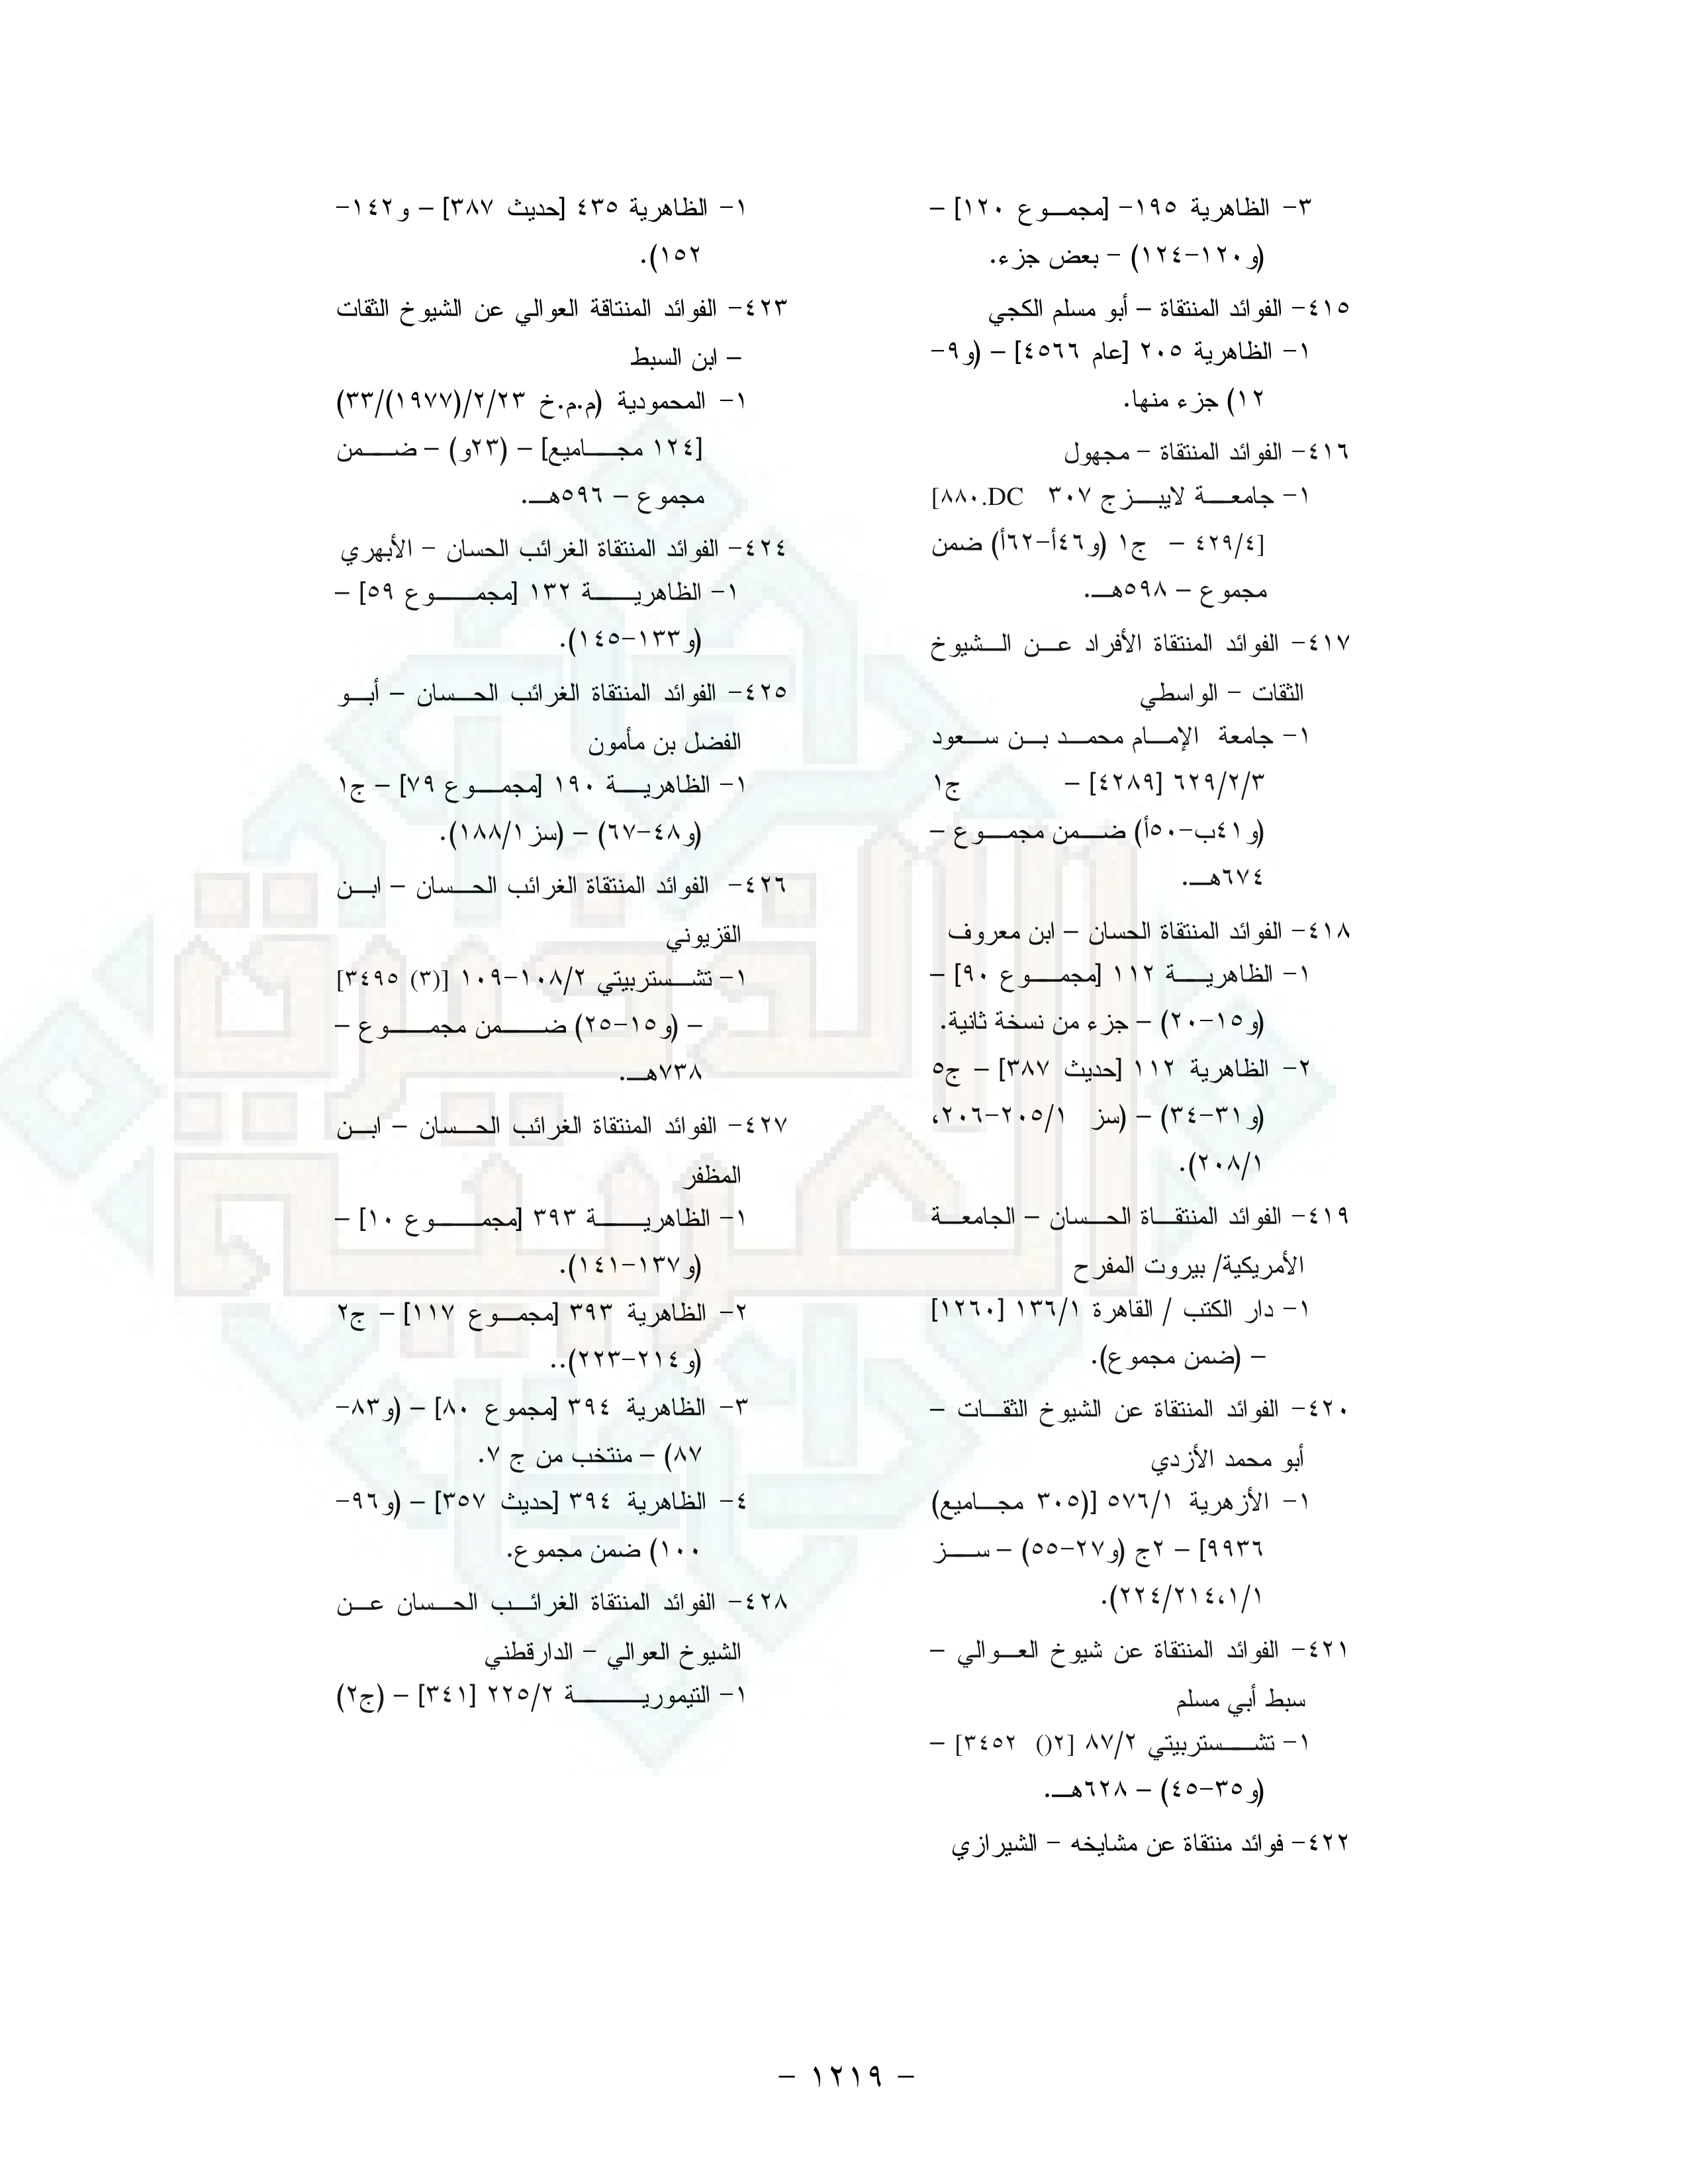 ٣- الظاهرية ١٩٥- [مجموع ١٢٠] –
(و١٢٠-١٢٤) – بعض جزء.
٤١٥- الفوائد المنتقاة – أبو مسلم الكجي
١- الظاهرية ٢٠٥ [عام ٤٥٦٦] – (و٩-
١٢) جزء منها.
٤١٦- الفوائد المنتقاة – مجهول
١- جامعة لايبزج ٣٠٧ DC.٨٨٠]
[٤٢٩/٤ – ج١ (و٤٦أ-٦٢أ) ضمن
مجموع – ٥٩٨هـ.
٤١٧- الفوائد المنتقاة الأفراد عن الشيوخ
الثقات – الواسطي
١- جامعة الإمام محمد بن سعود
٦٢٩/٢/٣ [٤٢٨٩] – ج١
(و٤١ب-٥٠أ) ضمن مجموع –
٦٧٤هـ.
٤١٨- الفوائد المنتقاة الحسان – ابن معروف
١- الظاهرية ١١٢ [مجموع ٩٠] –
(و١٥-٢٠) – جزء من نسخة ثانية.
٢- الظاهرية ١١٢ [حديث ٣٨٧] – ج٥
(و٣١-٣٤) – (سز ٢٠٥/١-٢٠٦،
٢٠٨/١).
٤١٩- الفوائد المنتقاة الحسان – الجامعة
الأمريكية/ بيروت المفرح
١- دار الكتب / القاهرة ١٣٦/١ [١٢٦٠]
– (ضمن مجموع).
٤٢٠- الفوائد المنتقاة عن الشيوخ الثقات –
أبو محمد الأزدي
١- الأزهرية ٥٧٦/١ [(٣٠٥ مجاميع)
٩٩٣٦] – ٢ج (و٢٧-٥٥) – سز
٢٢٤/٢١٤،١/١).
٤٢١- الفوائد المنتقاة عن شيوخ العوالي –
سبط أبي مسلم
١- تشستربيتي ٨٧/٢ [٢() ٣٤٥٢] –
(و٣٥-٤٥) – ٦٢٨هـ.
٤٢٢- فوائد منتقاة عن مشايخه – الشيرازي
١- الظاهرية ٤٣٥ [حديث ٣٨٧] – و١٤٢-
١٥٢).
٤٢٣- الفوائد المنتاقة العوالي عن الشيوخ الثقات
– ابن السبط
١- المحمودية (م.م.خ ٢/٢٣/(١٩٧٧)/٣٣)
[١٢٤ مجاميع] – (٢٣و) – ضمن
مجموع – ٥٩٦هـ.
٤٢٤- الفوائد المنتقاة الغرائب الحسان – الأبهري
١- الظاهرية ١٣٢ [مجموع ٥٩] –
(و١٣٣-١٤٥).
٤٢٥- الفوائد المنتقاة الغرائب الحسان – أبو
الفضل بن مأمون
١- الظاهرية ١٩٠ [مجموع ٧٩] – ج١
(و٤٨-٦٧) – (سز١٨٨/١).
٤٢٦- الفوائد المنتقاة الغرائب الحسان – ابن
القزيوني
١- تشستربيتي ١٠٨/٢-١٠٩ [(٣) ٣٤٩٥]
– (و١٥-٢٥) ضمن مجموع –
٧٣٨هـ.
٤٢٧- الفوائد المنتقاة الغرائب الحسان – ابن
المظفر
١- الظاهرية ٣٩٣ [مجموع ١٠] –
(و١٣٧-١٤١).
٢- الظاهرية ٣٩٣ [مجموع ١١٧] – ج٢
(و٢١٤-٢٢٣)..
٣- الظاهرية ٣٩٤ [مجموع ٨٠] – (و٨٣-
٨٧) – منتخب من ج ٧.
٤- الظاهرية ٣٩٤ [حديث ٣٥٧] – (و٩٦-
١٠٠) ضمن مجموع.
٤٢٨- الفوائد المنتقاة الغرائب الحسان عن
الشيوخ العوالي – الدارقطني
١- التيمورية ٢٢٥/٢ [٣٤١] – (ج٢)
– ١٢١٩ –